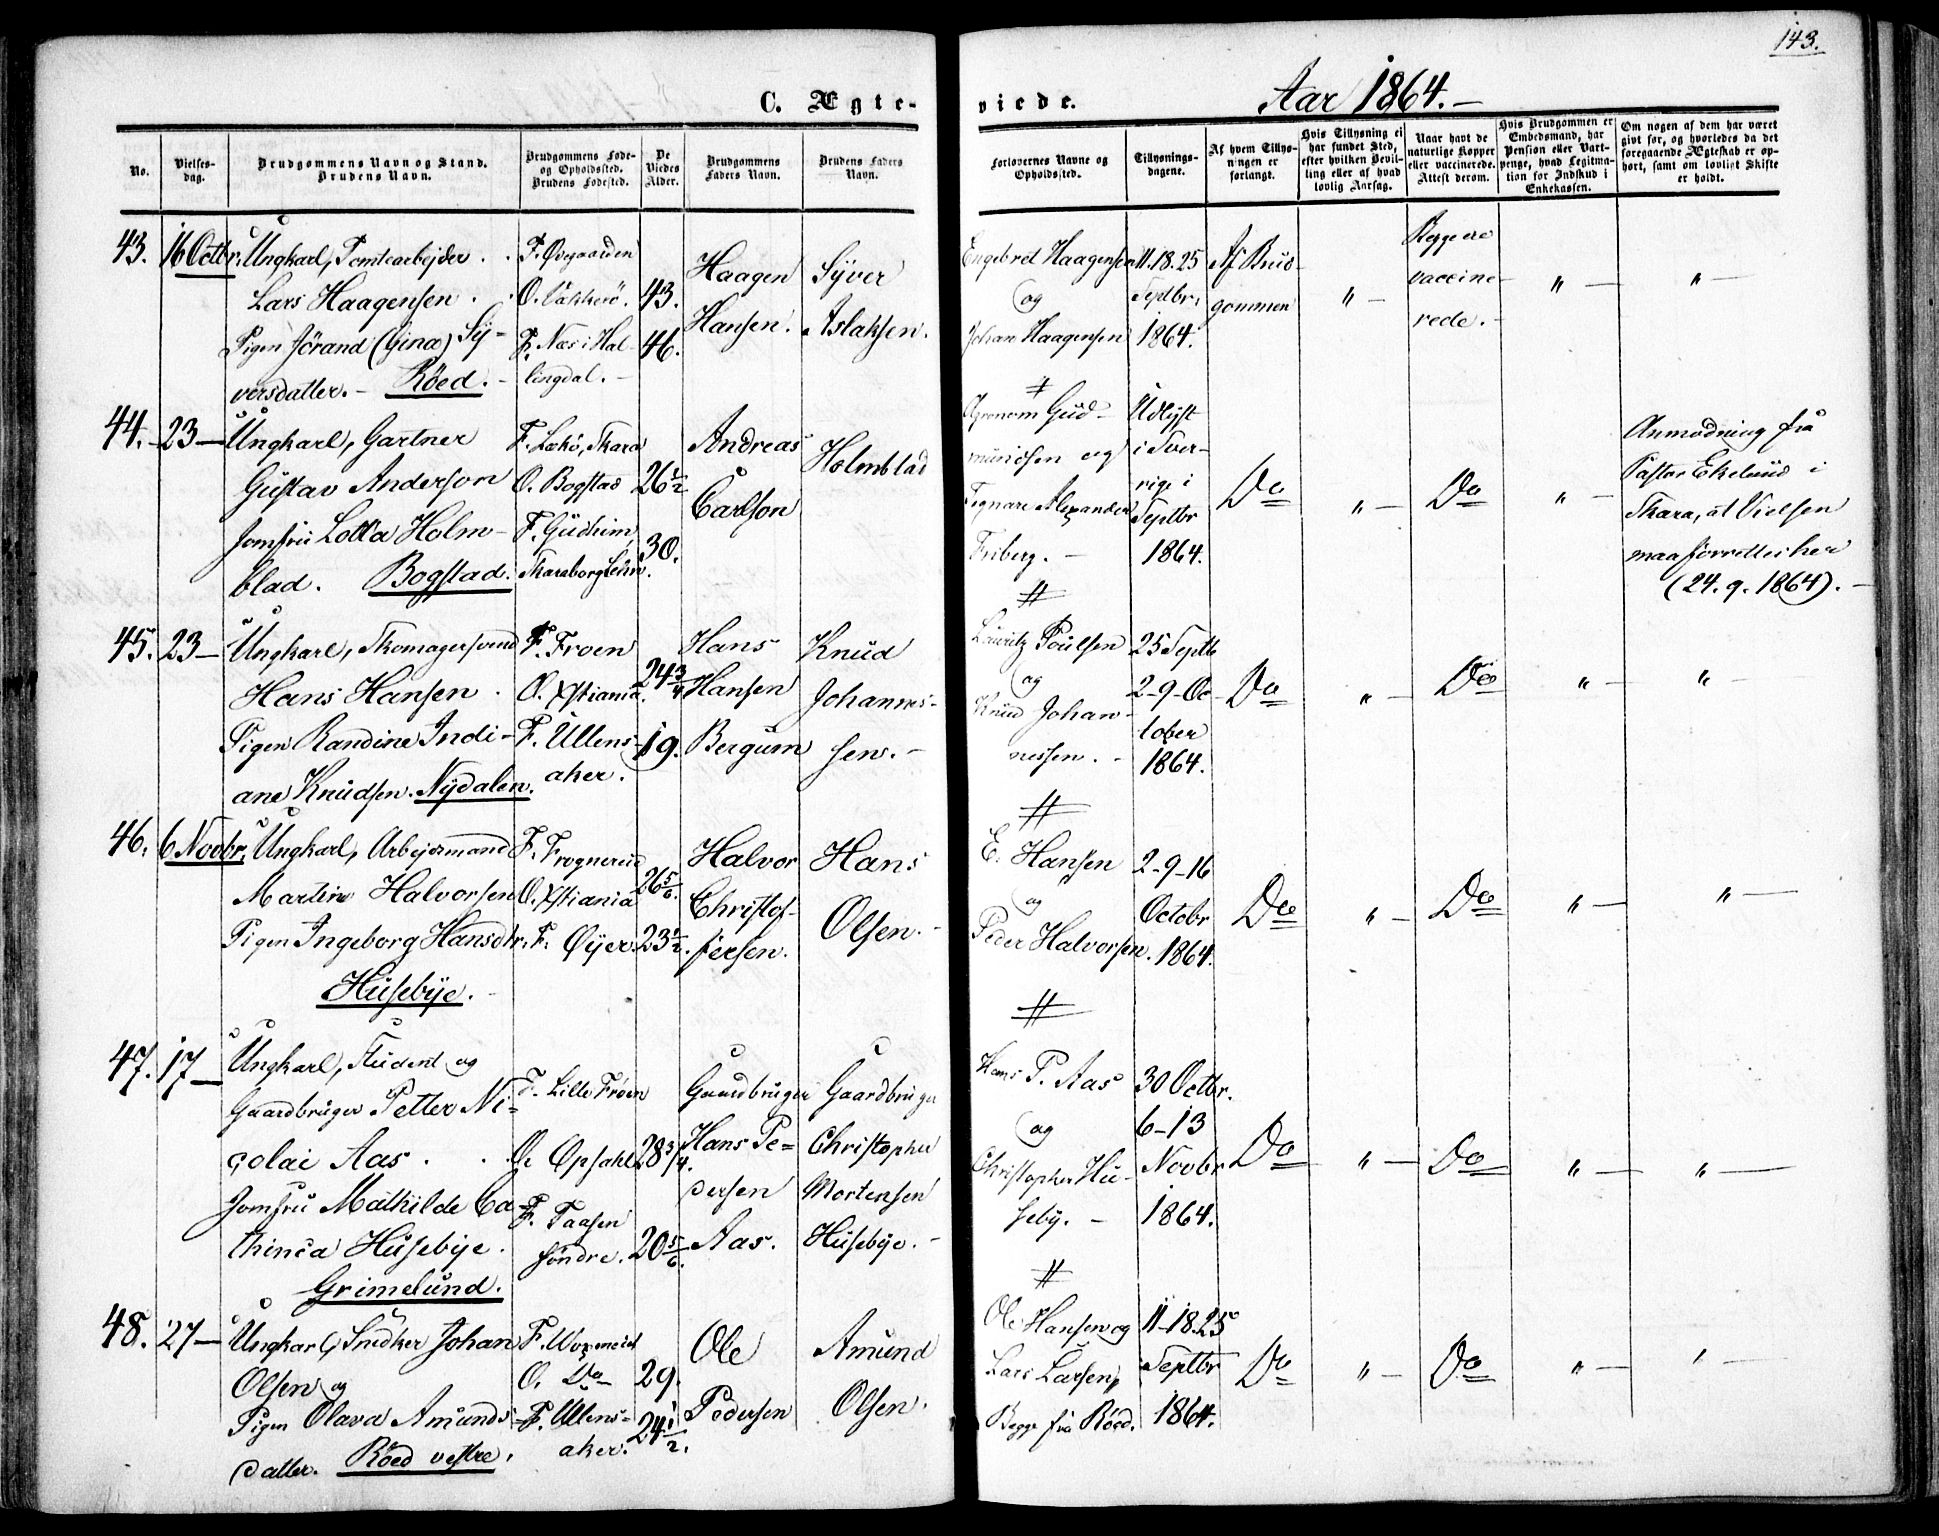 143.
C. Ægte-
viede.
Aar 1864.-
No.
Vielses-
dag.
Brudgommens Navn og Stand.
Brudens Navn.
Brudgommens Føde-
og Opholdssted.
Brudens Fødested.
De
Viedes
Alder.
Brudgommens
Faders Navn.
Brudens Faders
Navn.
Forlovernes Navne og
Opholdssted.
Tillysnings-
dagene.
Af hvem Tillys-
ningen er
forlangt.
Hvis Tillysning ei
har fundet Sted,
efter hvilken Bevil-
ling eller af hvad
lovlig Aarsag.
Naar havt de
naturlige Kopper
eller vaccinerede.
Attest derom.
Hvis Brudgommen er
Embedsmand, har
Pension eller Vart-
penge, hvad Legitima-
tion for Indskud i
Enkekassen.
Om nogen af dem har været
givt før, og hvorledes da det
foregaaende Ægteskab er op-
hørt, samt om lovligt Skifte
er holdt.
43.
16 Octbr.
Ungkarl, Tomtearbejder . .
Lars Haagensen . .
Pigen Jörand (Gina) Sy-
versdatter. - Röed. -
F. Ovegaarden
O. Vækkerö.
F. Næs i Hal-
lingdal. -
43.
46.
Haagen
Hansen.
Syver
Aslaksen.
Engebret Haagensen
og
Johan Haagensen
11.18.25
Septbr.
1864.
Af Brud-
gommen
" -
Begge ere
vaccine-
rede. -
" -
" -
44. -
23 -
Ungkarl, Gartner
Gustav Anderson
Jomfru Lotta Holm-
blad. Bogstad.
F. Lekö, Skara
O. Bogstad
F. Gudhem,
Skaraborg Lehn.
26 1/2
30.
Andreas
Carlson
Holmblad
Agronom Gud-
mundsen og
Tegnare Alexander
Friberg. -
Udlyst
i Sver-
rige i
Septbr
1864.
Do
" -
Do
" -
Anmodning fra
Pastor Ekelund i
Skara, at Vielsen
maa forrettes her
(24. 9. 1864). -
45.
23 -
Ungkarl, Skomagersvend
Hans Hansen .
Pigen Randine Indi-
ane Knudsen. Nydalen.
F. Froen
O. Xstiania.
F. Ullens-
aker.
24 3/4
19.
Hans
Hansen
Bergum
Knud
Johannes-
sen. -
Lauritz Poulsen
og
Knud Johan-
nessen. -
25 Septb
2-9-Oc-
tober
1864.
Do
" -
Do
" -
" -
46.
6 Novbr.
Ungkarl, Arbejdsmand
Martin Halvorsen
Pigen Ingeborg Hansdtr.
Husebye. -
F. Frognerud
O. Xstiania
F. Øyer.
26 5/6.
23 1/2.
Halvor
Christof-
fersen.
Hans
Olsen. -
E. Hansen
og
Peder Halvorsen.
2-9-16
Octobr
1864.
Do
" -
Do
" -
" -
47.
17 -
Ungkarl, Student og
Gaardbruger Petter Ni-
colai Aas . .
Jomfru Mathilde Ca-
thinca Husebye.
Grimelund.
F. Lille Frøen
O. Opsahl
F. Taasen
søndre.
28 3/4.
20 5/6.
Gaardbruger
Hans Pe-
dersen
Aas.
Gaardbruger
Christopher
Mortensen
Husebye. -
Hans P. Aas
og
Christopher Hu-
seby. -
30 Octbr.
6-13
Novbr
1864.
Do
" -
Do
" -
" -
48.
27 -
Ungkarl, Snedker Johan
Olsen og
Pigen Olava Amunds-
datter. Röed vestre.
F.
O. Do
F. Ullens-
aker.
29.
24 1/2.
Ole
Pedersen
Amund
Olsen.
Ole Hansen og
Lars Larsen,
Begge fra Röed.
11-18.25
Septbr
1864.
Do
" -
Do
" -
" -